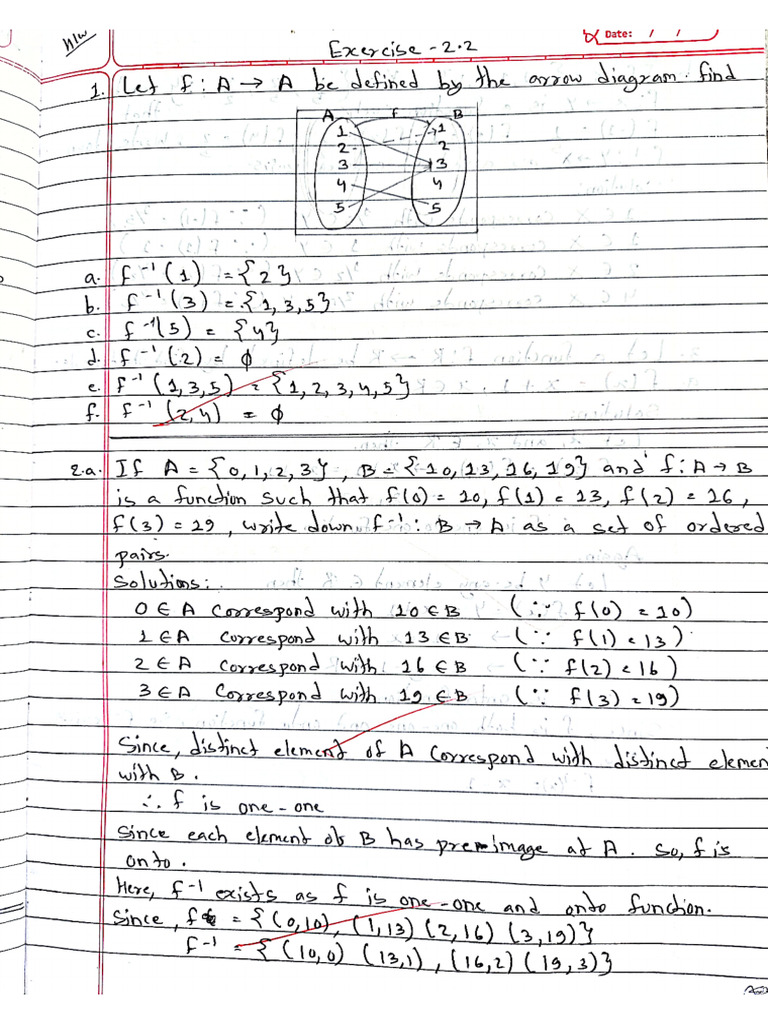 H/W
Date: / /
Exercise - 2.2
1. Let f : A → A be defined by the arrow diagram. find
A f B
1 1
2 2
3 3
4 4
5 5
a. f⁻¹(1) = {2}
b. f⁻¹(3) = {1,3,5}
c. f⁻¹(5) = {4}
d. f⁻¹(2) = ϕ
e. f⁻¹(1,3,5) = {1,2,3,4,5}
f. f⁻¹(2,4) = ϕ
2.a. If A = {0,1,2,3}, B = {10,13,16,19} and f : A → B
is a function such that f(0) = 10, f(1) = 13, f(2) = 16,
f(3) = 19, write down f⁻¹ : B → A as a set of ordered
pairs.
Solutions:
0 ∈ A Correspond with 10 ∈ B (∵ f(0) = 10)
1 ∈ A Correspond with 13 ∈ B (∵ f(1) = 13)
2 ∈ A Correspond with 16 ∈ B (∵ f(2) = 16)
3 ∈ A Correspond with 19 ∈ B (∵ f(3) = 19)
Since, distinct element of A Correspond with distinct elemen
with B.
∴ f is one-one
Since each element of B has premimage at A. So, f is
onto.
Here, f⁻¹ exists as f is one-one and onto function.
Since, f = {(0,10), (1,13) (2,16) (3,19)}
f⁻¹ = {(10,0) (13,1), (16,2) (19,3)}